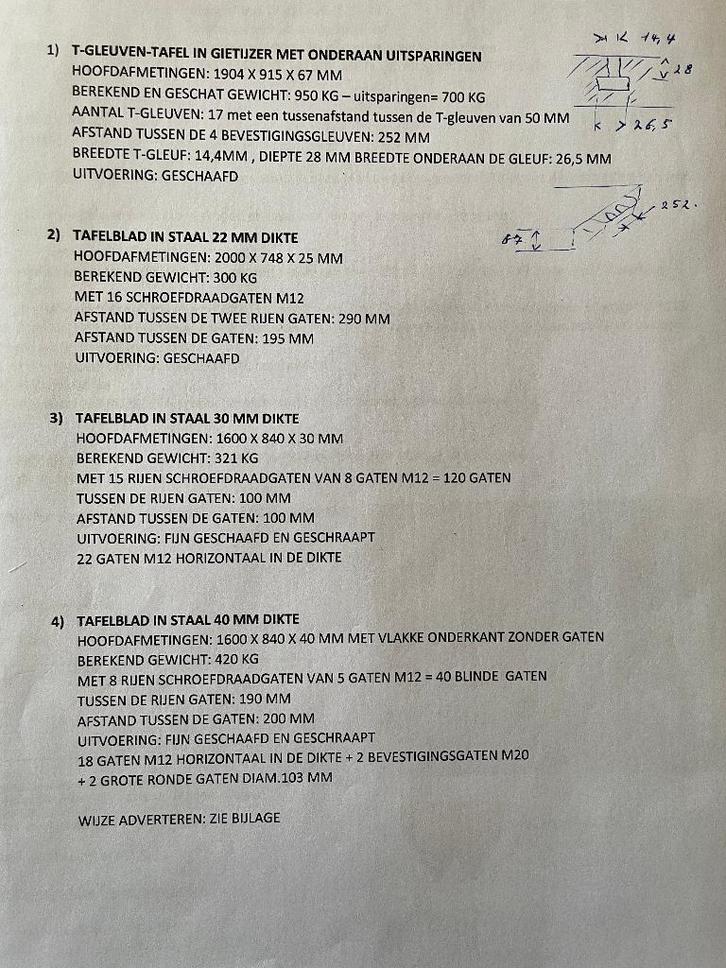 1) T-GLEUVEN-TAFEL IN GIETIJZER MET ONDERAAN UITSPARINGEN
HOOFDAFMETINGEN: 1904 X 915 X 67 MM
BEREKEND EN GESCHAT GEWICHT: 950 KG – uitsparingen= 700 KG
AANTAL T-GLEUVEN: 17 met een tussenafstand tussen de T-gleuven van 50 MM
AFSTAND TUSSEN DE 4 BEVESTIGINGSGLEUVEN: 252 MM
BREEDTE T-GLEUF: 14,4MM , DIEPTE 28 MM BREEDTE ONDERAAN DE GLEUF: 26,5 MM
UITVOERING: GESCHAAFD
14,4
28
26,5
252.
87
2) TAFELBLAD IN STAAL 22 MM DIKTE
HOOFDAFMETINGEN: 2000 X 748 X 25 MM
BEREKEND GEWICHT: 300 KG
MET 16 SCHROEFDRAADGATEN M12
AFSTAND TUSSEN DE TWEE RIJEN GATEN: 290 MM
AFSTAND TUSSEN DE GATEN: 195 MM
UITVOERING: GESCHAAFD
3) TAFELBLAD IN STAAL 30 MM DIKTE
HOOFDAFMETINGEN: 1600 X 840 X 30 MM
BEREKEND GEWICHT: 321 KG
MET 15 RIJEN SCHROEFDRAADGATEN VAN 8 GATEN M12 = 120 GATEN
TUSSEN DE RIJEN GATEN: 100 MM
AFSTAND TUSSEN DE GATEN: 100 MM
UITVOERING: FIJN GESCHAAFD EN GESCHRAAPT
22 GATEN M12 HORIZONTAAL IN DE DIKTE
4) TAFELBLAD IN STAAL 40 MM DIKTE
HOOFDAFMETINGEN: 1600 X 840 X 40 MM MET VLAKKE ONDERKANT ZONDER GATEN
BEREKEND GEWICHT: 420 KG
MET 8 RIJEN SCHROEFDRAADGATEN VAN 5 GATEN M12 = 40 BLINDE GATEN
TUSSEN DE RIJEN GATEN: 190 MM
AFSTAND TUSSEN DE GATEN: 200 MM
UITVOERING: FIJN GESCHAAFD EN GESCHRAAPT
18 GATEN M12 HORIZONTAAL IN DE DIKTE + 2 BEVESTIGINGSGATEN M20
+ 2 GROTE RONDE GATEN DIAM.103 MM
WIJZE ADVERTEREN: ZIE BIJLAGE